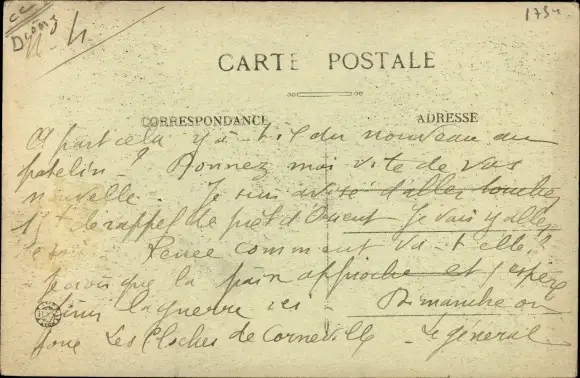 1754
CARTE POSTALE
CORRESPONDANCE
ADRESSE
A part cela y a-t-il du nouveau au
patelin ? Donnez moi vite de vos
nouvelle. Je suis avisé d'aller toucher
rappel de prêt d'Orient Je vais y aller
comment va-t-elle ?
Je crois que la paix approche et j'espère
la guerre ici - Dimanche on
joue Les Cloches de Corneville - Le général